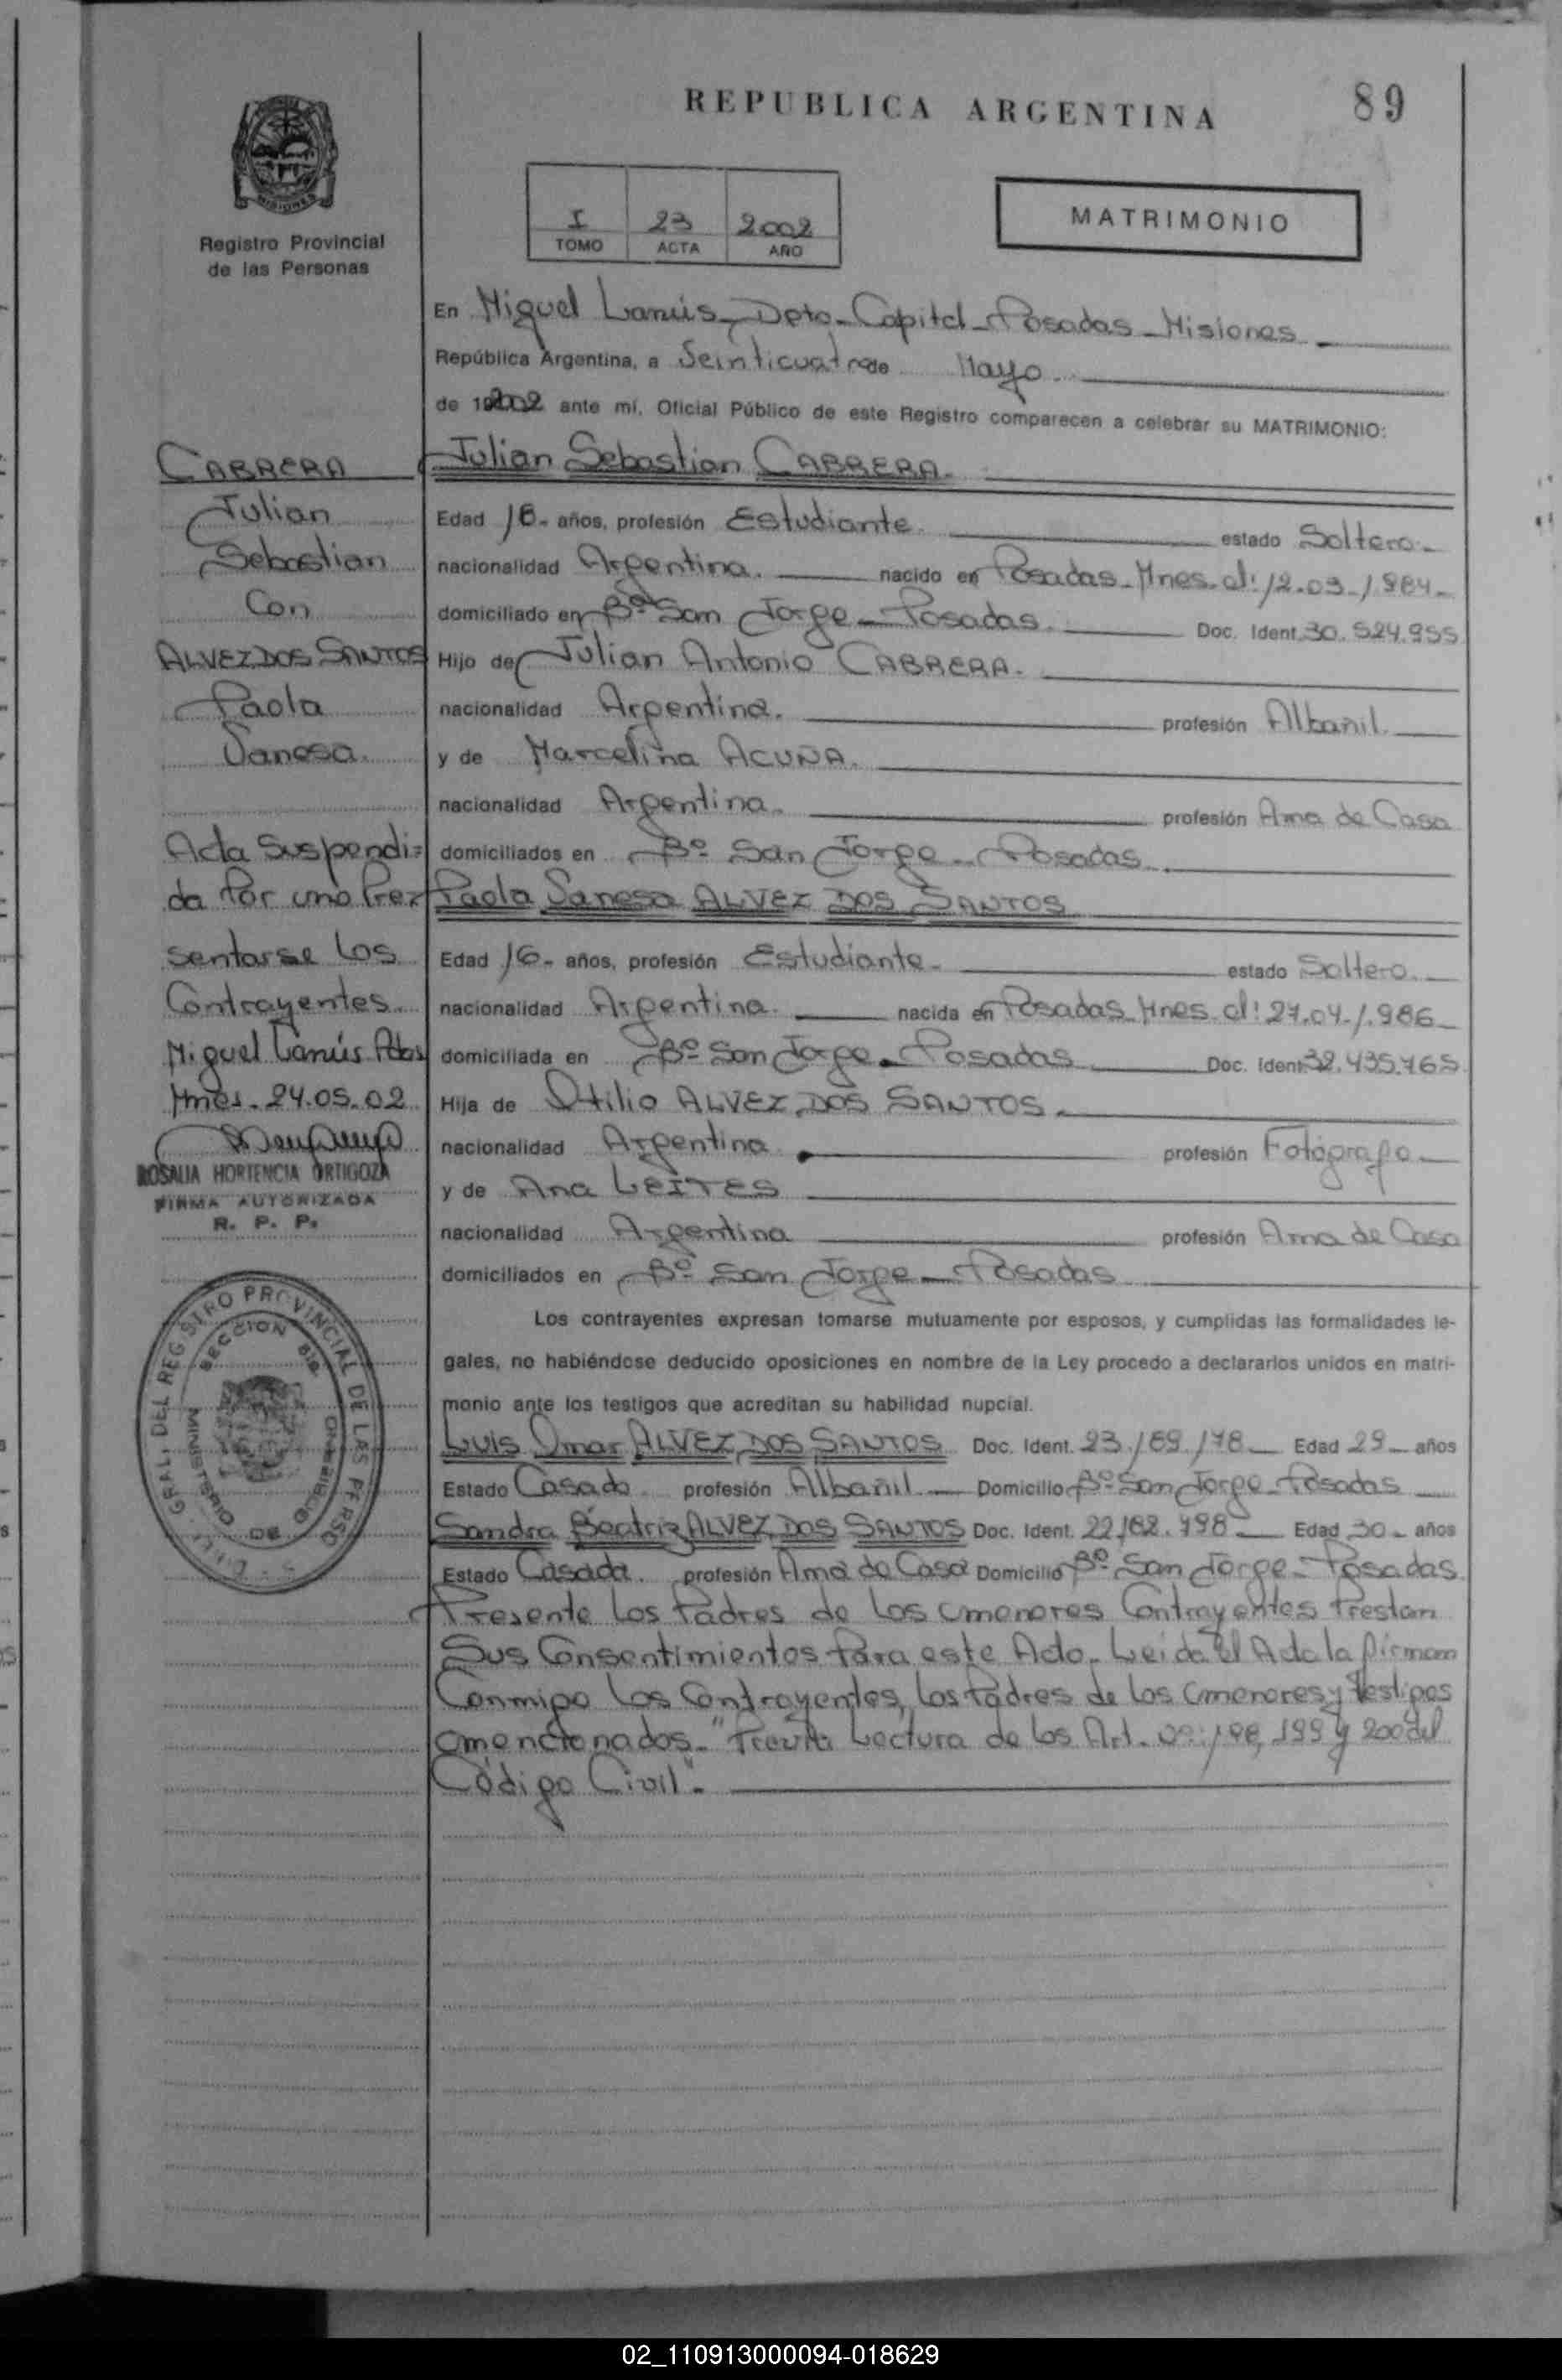 REPUBLICA ARGENTINA
89
MISIONES
Registro Provincial
de las Personas
I 23 2002
TOMO ACTA AÑO
MATRIMONIO
En Miguel Lanús - Dpto - Capital - Posadas - Misiones
República Argentina, a Veinticuatro de Mayo
de 2002 ante mí, Oficial Público de este Registro comparecen a celebrar su MATRIMONIO:
Julian Sebastian CABRERA.
Edad 18- años, profesión Estudiante. estado Soltero.-
nacionalidad Argentina. nacido en Posadas-Mnes. el: 12.03.1984-
domiciliado en Bº San Jorge - Posadas. Doc. Ident. 30.524.955
Hijo de Julian Antonio CABRERA.
nacionalidad Argentina. profesión Albañil.
y de Marcelina ACUÑA.
nacionalidad Argentina. profesión Ama de Casa
domiciliados en Bº San Jorge - Posadas.
Paola Vanesa ALVEZ DOS SANTOS
Edad 16- años, profesión Estudiante- estado Soltero.
nacionalidad Argentina. nacida en Posadas-Mnes. el: 27.04.1.986-
domiciliada en Bº San Jorge - Posadas Doc. Ident. 32.435.765
Hija de Otilio ALVEZ DOS SANTOS.
nacionalidad Argentina. profesión Fotógrafo
y de Ana LEITES
nacionalidad Argentina profesión Ama de Casa
domiciliados en Bº San Jorge - Posadas
Los contrayentes expresan tomarse mutuamente por esposos, y cumplidas las formalidades le-
gales, no habiéndose deducido oposiciones en nombre de la Ley procedo a declararlos unidos en matri-
monio ante los testigos que acreditan su habilidad nupcial.
Luis Omar ALVEZ DOS SANTOS Doc. Ident. 23.169.178 Edad 29 años
Estado Casado. profesión Albañil Domicilio Bº San Jorge - Posadas
Sandra Beatriz ALVEZ DOS SANTOS Doc. Ident. 22.162.798 Edad 30- años
Estado Casada. profesión Ama de Casa Domicilio Bº San Jorge - Posadas
Presente los Padres de los menores Contrayentes Prestan
Sus Consentimientos Para este Acto. Leida el Acta la firman
Conmigo los Contrayentes, los Padres de los menores y Testigos
mencionados. "Previa Lectura de los Art. nº: 198, 199 y 200 del
Código Civil".
CABRERA
Julian
Sebastian
Con
ALVEZ DOS SANTOS
Paola
Vanesa.
Acta Suspendi=
da Por no Pre=
sentarse los
Contrayentes.
Miguel Lanús Pdas
Mnes. 24.05.02
ROSALIA HORTENCIA ORTIGOZA
FIRMA AUTORIZADA
R. P. P.
GRAL. DEL REGISTRO PROVINCIAL DE LAS PERSO
SECCION
MINISTERIO DE GOBIERNO
02_110913000094-018629